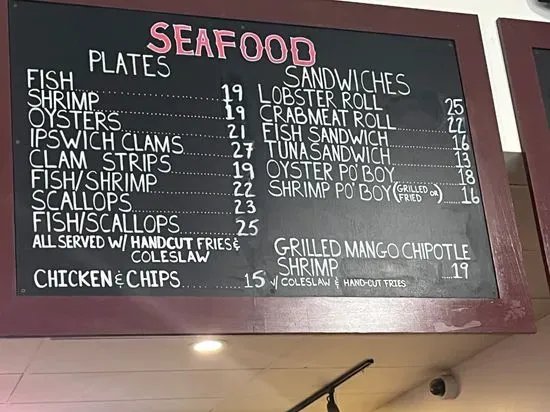 SEAFOOD
PLATES
FISH ..... 19
SHRIMP ..... 19
OYSTERS ..... 21
IPSWICH CLAMS ..... 27
CLAM STRIPS ..... 19
FISH/SHRIMP ..... 22
SCALLOPS ..... 23
FISH/SCALLOPS ..... 25
ALL SERVED W/ HANDCUT FRIES &
COLESLAW
CHICKEN & CHIPS ..... 15
SANDWICHES
LOBSTER ROLL ..... 25
CRABMEAT ROLL ..... 22
FISH SANDWICH ..... 16
TUNA SANDWICH ..... 13
OYSTER PO'BOY ..... 18
SHRIMP PO'BOY (GRILLED OR FRIED) ..... 16
GRILLED MANGO CHIPOTLE
SHRIMP ..... 19
W/ COLESLAW & HAND-CUT FRIES